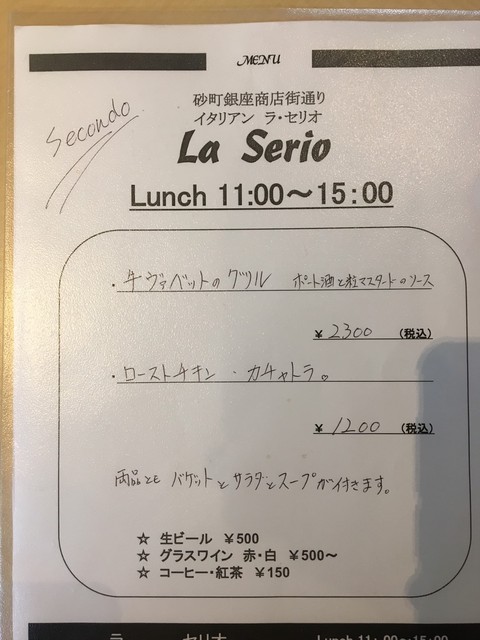 MENU
Secondo
砂町銀座商店街通り
イタリアン ラ・セリオ
La Serio
Lunch 11:00～15:00
・牛ヴァベットのグリル ポート酒と粒マスタードのソース
¥ 2300 (税込)
・ローストチキン・カチャトラ。
¥ 1200 (税込)
両品とも バゲットとサラダとスープが付きます。
☆ 生ビール ¥500
☆ グラスワイン 赤・白 ¥500～
☆ コーヒー・紅茶 ¥150
ラ セリオ Lunch 11:00～15:00